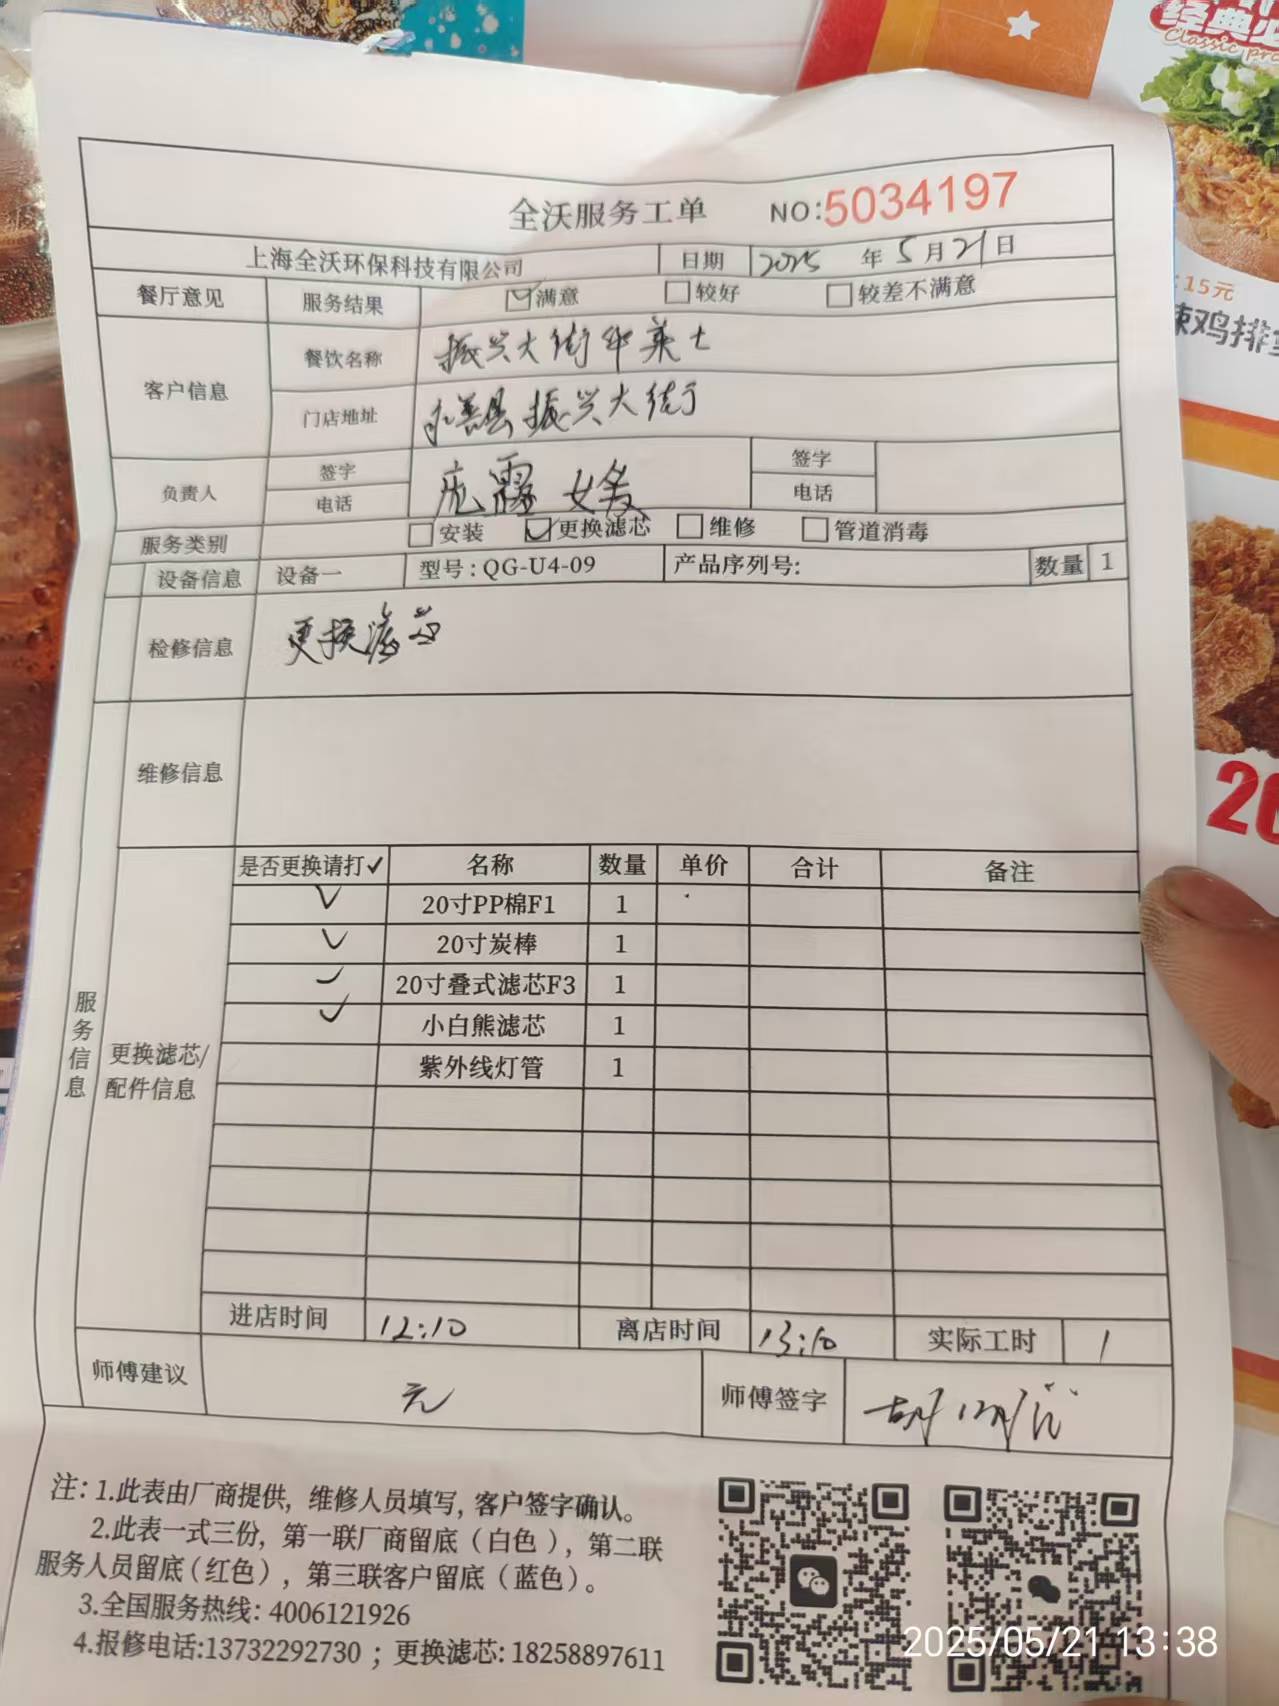 经典必
Classic pr
:15元
辣鸡排
26
全沃服务工单 NO:5034197
上海全沃环保科技有限公司 日期 2025 年 5 月 21 日
餐厅意见 服务结果 满意 较好 较差不满意
客户信息 餐饮名称 振兴大街华莱士
门店地址 永善县振兴大街
负责人 签字 签字
电话 电话
服务类别 安装 更换滤芯 维修 管道消毒
设备信息 设备一 型号:QG-U4-09 产品序列号: 数量 1
检修信息 更换滤芯
维修信息
服务信息
更换滤芯/
配件信息
是否更换请打✓ 名称 数量 单价 合计 备注
✓ 20寸PP棉F1 1
✓ 20寸炭棒 1
✓ 20寸叠式滤芯F3 1
✓ 小白熊滤芯 1
紫外线灯管 1
进店时间 12:10 离店时间 13:10 实际工时 1
师傅建议 元 师傅签字
注: 1.此表由厂商提供, 维修人员填写, 客户签字确认。
2.此表一式三份, 第一联厂商留底(白色), 第二联
服务人员留底(红色), 第三联客户留底(蓝色)。
3.全国服务热线: 4006121926
4.报修电话:13732292730 ; 更换滤芯: 18258897611
2025/05/21 13:38